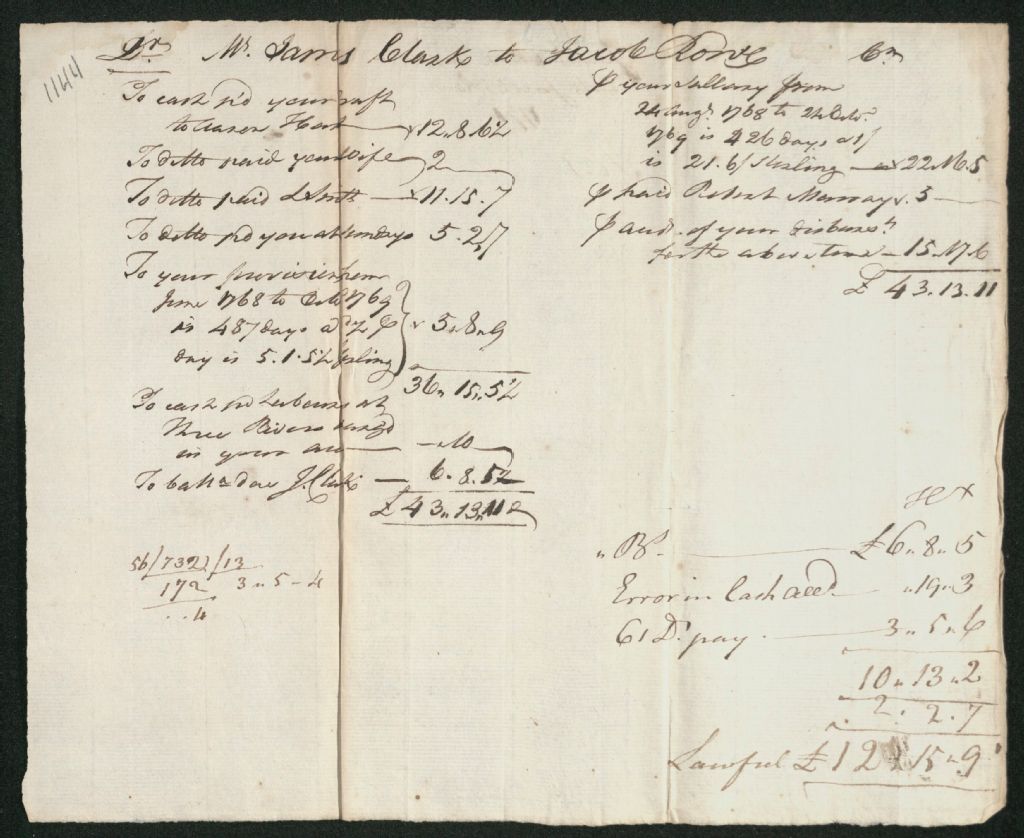 1144
Dr. Mr. James Clark to Jacob Rowe Cr
To cash p'd your draft
to Aaron Hart 12.8.6½
To ditto paid your Wife 2
To ditto paid 11.15.7
To ditto p'd you at sundrys 5.2.7
To your provision from
June 1768 to Octo 1769
is 487 days at ℔
day is 5.1.5½ Sterling 5.8.9
36.15.5½
To cash p'd at
Three Rivers
in your acc 10
To ballce due J. Clark 6.8.5½
£43.13.11
56/732/13
172 3.5-4
..4
℔ your Sallary from
24 Augt. 1768 to 24 Octo.
1769 is 426 days at 1/
is 21.6/ Sterling 22.16.5
℔ paid Robert Murray 5
℔ of your disbursts
for the above time 15.17.6
£43.13.11
HX
Br. £6.8.5
Error in Cash Acct. 19.3
61 Ds. pay. 3.5.6
10.13.2
2.2.7
Lawful £12.15.9